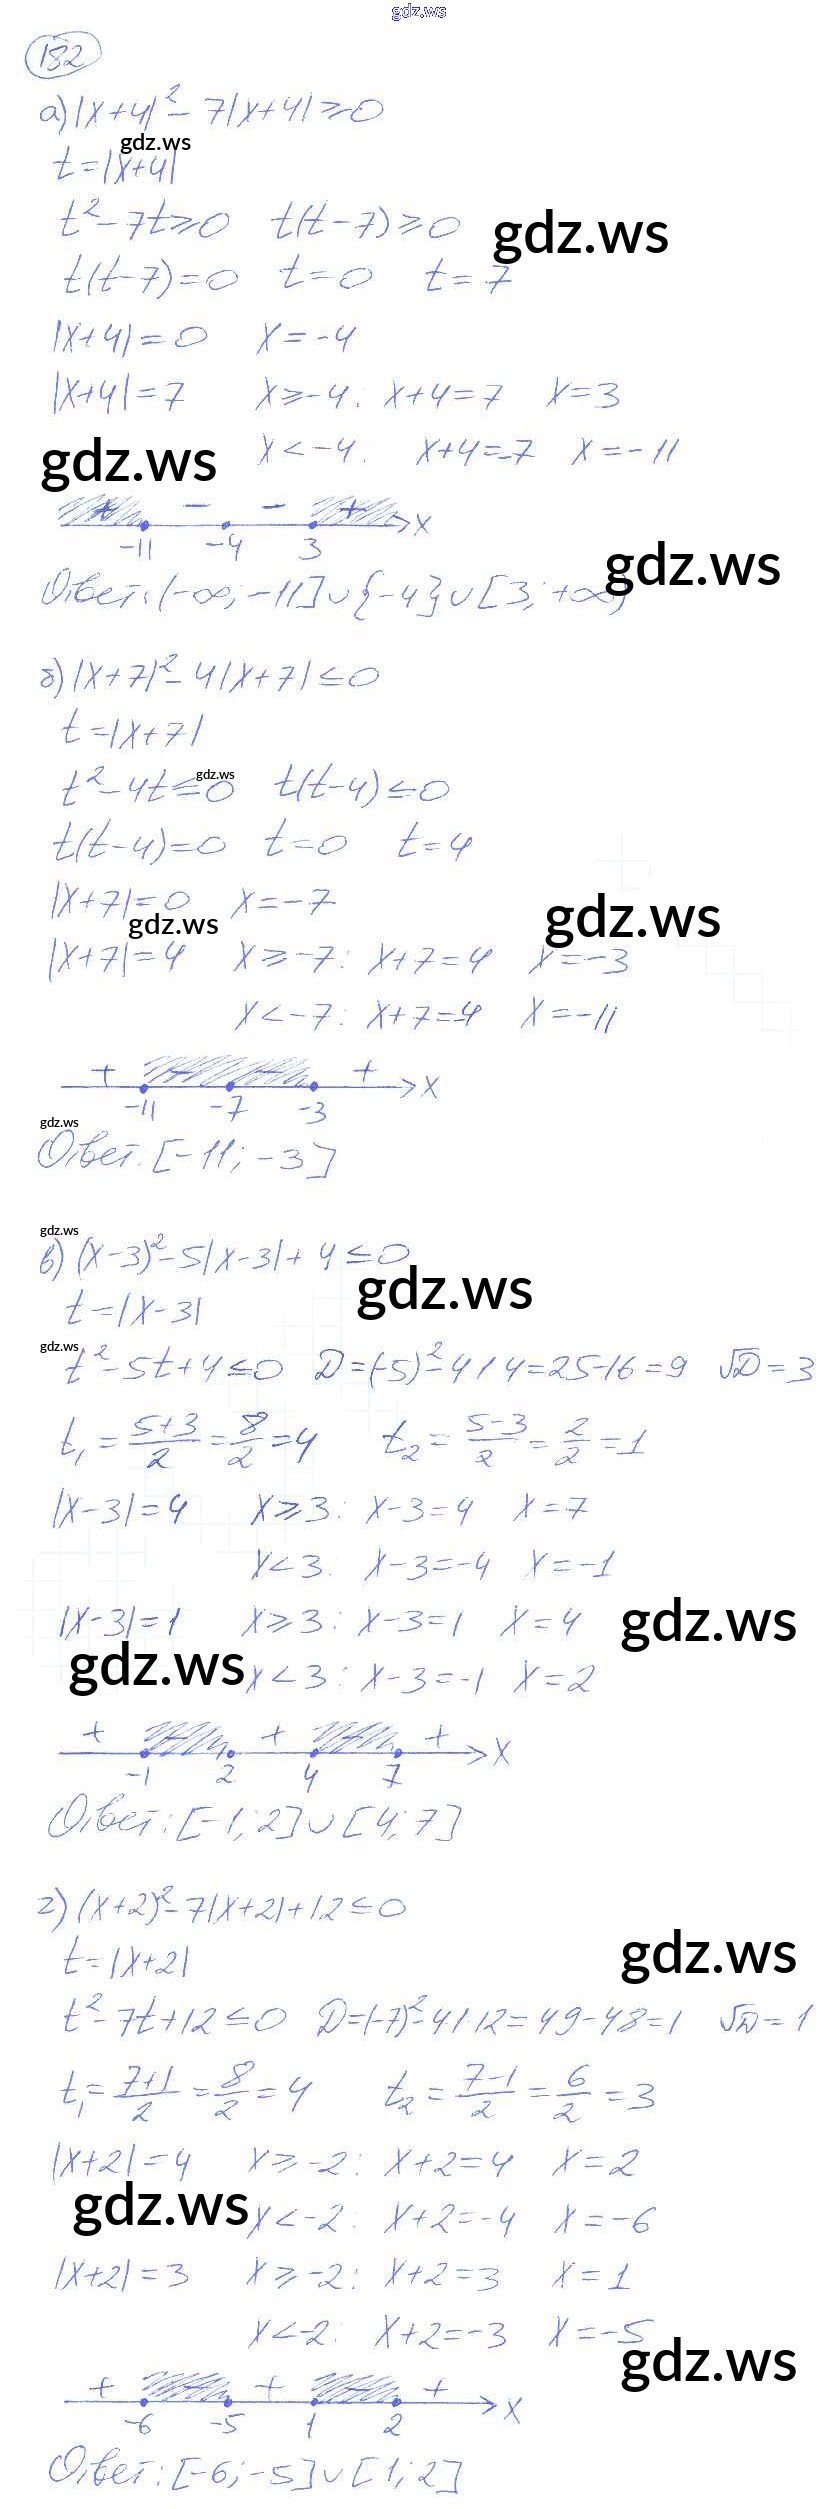 gdz.ws
182
а) |x+4|² - 7|x+4| ≥ 0
gdz.ws
t = |x+4|
t² - 7t ≥ 0 t(t-7) ≥ 0
gdz.ws
t(t-7) = 0 t = 0 t = 7
|x+4| = 0 x = -4
|x+4| = 7 x ≥ -4: x+4 = 7 x = 3
x < -4: x+4 = -7 x = -11
gdz.ws
+ - - + x
-11 -4 3
gdz.ws
Ответ: (-∞; -11] ∪ {-4} ∪ [3; +∞)
б) |x+7|² - 4|x+7| ≤ 0
t = |x+7|
gdz.ws
t² - 4t ≤ 0 t(t-4) ≤ 0
t(t-4) = 0 t = 0 t = 4
|x+7| = 0 x = -7
gdz.ws
gdz.ws
|x+7| = 4 x ≥ -7: x+7 = 4 x = -3
x < -7: x+7 = -4 x = -11
+ - - + x
-11 -7 -3
gdz.ws
Ответ: [-11; -3]
gdz.ws
в) (x-3)² - 5|x-3| + 4 ≤ 0
gdz.ws
t = |x-3|
gdz.ws
t² - 5t + 4 ≤ 0 D = (-5)² - 4·1·4 = 25-16 = 9 √D = 3
t₁ = (5+3)/2 = 8/2 = 4 t₂ = (5-3)/2 = 2/2 = 1
|x-3| = 4 x ≥ 3: x-3 = 4 x = 7
x < 3: x-3 = -4 x = -1
|x-3| = 1 x ≥ 3: x-3 = 1 x = 4
gdz.ws
gdz.ws
x < 3: x-3 = -1 x = 2
+ - + - + x
-1 2 4 7
Ответ: [-1; 2] ∪ [4; 7]
г) (x+2)² - 7|x+2| + 12 ≤ 0
gdz.ws
t = |x+2|
t² - 7t + 12 ≤ 0 D = (-7)² - 4·1·12 = 49-48 = 1 √D = 1
t₁ = (7+1)/2 = 8/2 = 4 t₂ = (7-1)/2 = 6/2 = 3
|x+2| = 4 x ≥ -2: x+2 = 4 x = 2
gdz.ws
x < -2: x+2 = -4 x = -6
|x+2| = 3 x ≥ -2: x+2 = 3 x = 1
x < -2: x+2 = -3 x = -5
gdz.ws
+ - + - + x
-6 -5 1 2
Ответ: [-6; -5] ∪ [1; 2]